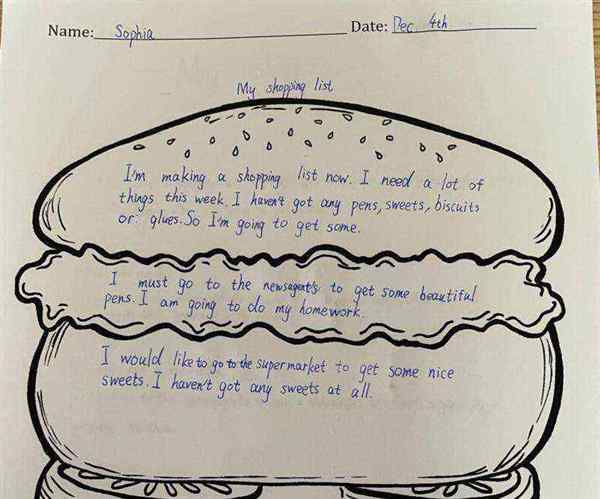 Name: Sophia Date: Dec 4th
My shopping list
I'm making a shopping list now. I need a lot of
things this week. I haven't got any pens, sweets, biscuits
or glues. So I'm going to get some.
I must go to the newsagent's to get some beautiful
pens. I am going to do my homework.
I would like to go to the supermarket to get some nice
sweets. I haven't got any sweets at all.